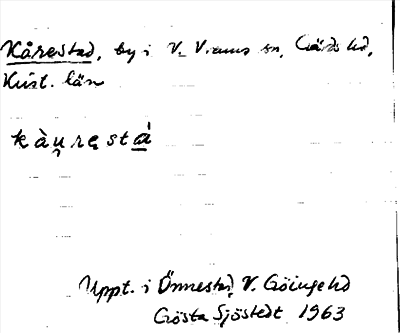 Kårestad, by i V. Vrams sn, Gärds hd,
Krist. län
kàu̯restá
Uppt. i Önnestad, V. Göinge hd
Gösta Sjöstedt 1963